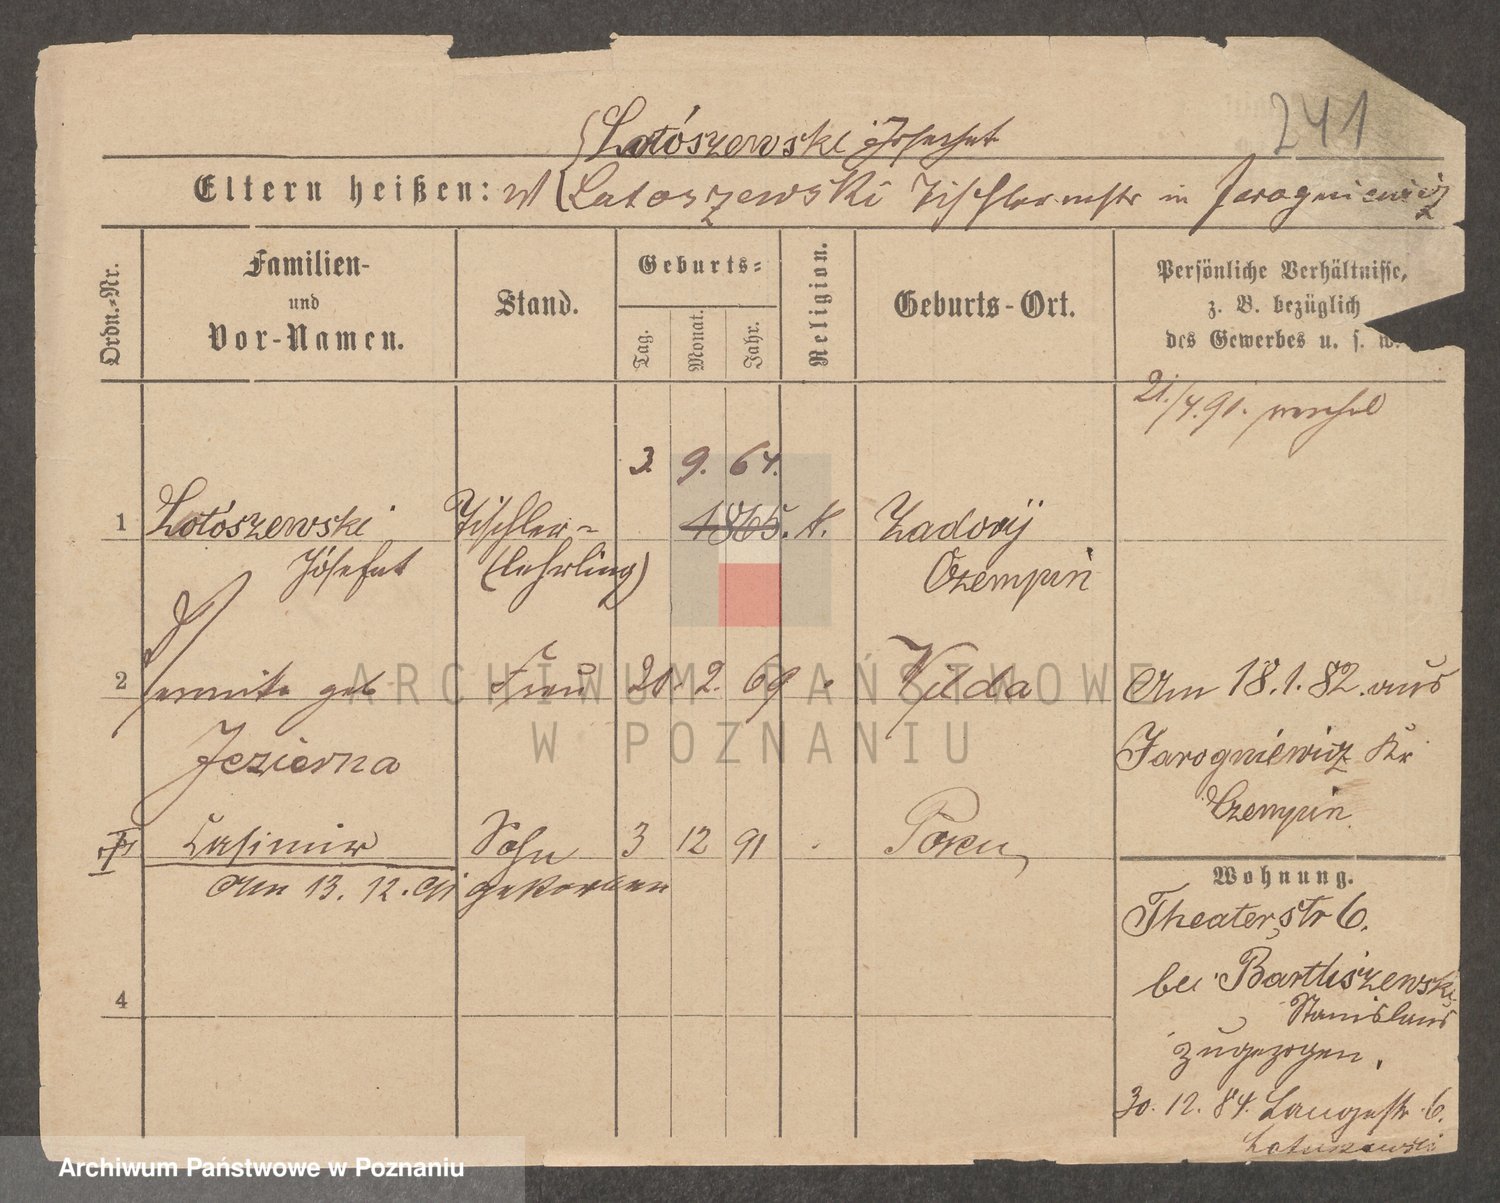 241
Lotószewski Josephat
Eltern heißen: Latoszewski Tischlermstr in Jarogniewicz
Ordn.-Nr.
Familien-
und
Vor-Namen.
Stand.
Geburts-
Tag.
Monat.
Jahr.
Religion.
Geburts-Ort.
Persönliche Verhältnisse,
z. B. bezüglich
des Gewerbes u. s. w.
21./4.91.
3. 9. 64.
1 Lotószewski Tischler- 1865. k. Zadory
Józefat (Lehrling) Czempiń
2 geb Frau 2. 69 Wilda Am 18.1.82. aus
Jezierna Jarogniewicz Kr
Czempin.
3 Casimir Sohn 3 12 91 Posen
Am 13. 12. 91 gestorben
Wohnung.
Theaterstr 6.
bei Bartliszewski
Stanislaus
zugezogen.
4
30. 12. 84. Langestr. 6.
ARCHIWUM PAŃSTWOWE
W POZNANIU
Archiwum Państwowe w Poznaniu